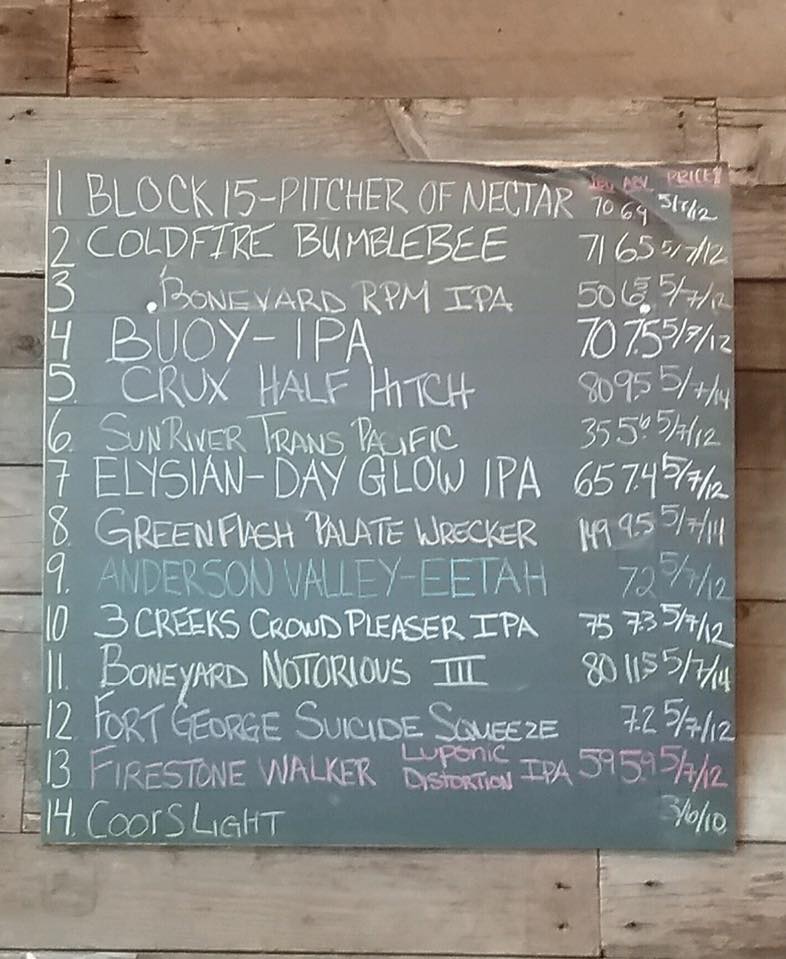 IBU ABV PRICE$
1 BLOCK 15-PITCHER OF NECTAR 70 69 5/7/12
2 COLDFIRE BUMBLEBEE 71 65 5/7/12
3 BONEYARD RPM IPA 50 6.5 5/7/12
4 BUOY-IPA 70 7.5 5/7/12
5. CRUX HALF HITCH 80 9.5 5/7/14
6. SUNRIVER TRANS PACIFIC 35 5.6 5/7/12
7 ELYSIAN-DAY GLOW IPA 65 7.4 5/7/12
8. GREEN FLASH PALATE WRECKER 149 9.5 5/7/14
9. ANDERSON VALLEY-EETAH 72 5/7/12
10 3 CREEKS CROWD PLEASER IPA 75 7.3 5/7/12
11. BONEYARD NOTORIOUS III 80 11.5 5/7/14
12 FORT GEORGE SUICIDE SQUEEZE 7.2 5/7/12
13 FIRESTONE WALKER LUPONIC DISTORTION IPA 59 5.9 5/7/12
14. COORS LIGHT 3/6/10